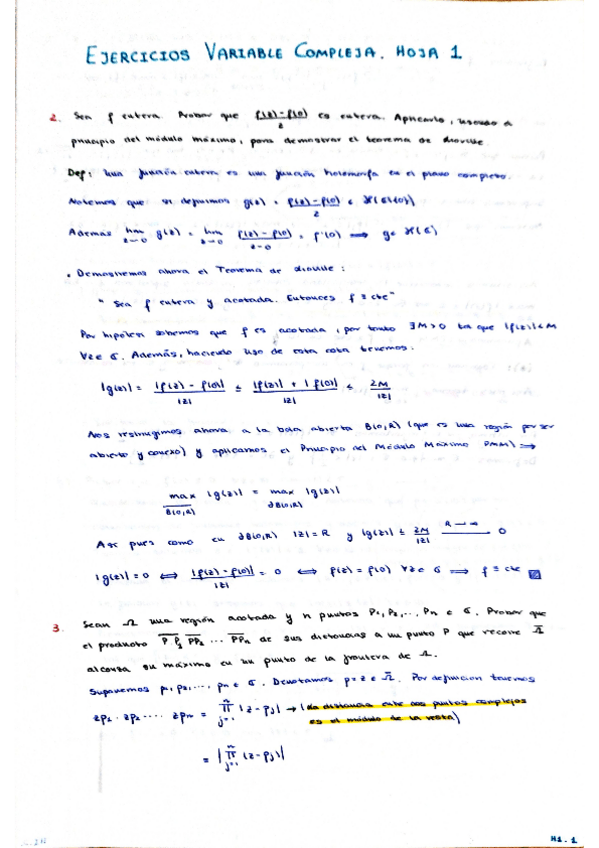 EJERCICIOS VARIABLE COMPLEJA. HOJA 1
2. Sea f entera. Probar que (f(z)-f(0))/z es entera. Aplicarlo, usando el
principio del módulo máximo, para demostrar el teorema de Liouville.
Def: Una función entera es una función holomorfa en el plano complejo.
Notemos que si definimos g(z) = (f(z)-f(0))/z ∈ H(C\{0})
Además lim z→0 g(z) = lim z→0 (f(z)-f(0))/(z-0) = f'(0) ⟹ g ∈ H(C)
• Demostremos ahora el Teorema de Liouville:
" Sea f entera y acotada. Entonces f ≡ cte"
Por hipótesis sabemos que f es acotada, por tanto ∃M>0 tq que |f(z)|<M
∀z∈ C. Además, haciendo uso de esta cota tenemos:
|g(z)| = |f(z)-f(0)|/|z| ≤ (|f(z)| + |f(0)|)/|z| ≤ 2M/|z|
Nos restringimos ahora a la bola abierta B(0,R) (que es una región por ser
abierto y conexo) y aplicamos el Principio del Módulo Máximo (PMM) ⟹
max B(0,R) |g(z)| = max ∂B(0,R) |g(z)|
Así pues como en ∂B(0,R) |z|=R y |g(z)| ≤ 2M/|z| R→∞ 0
|g(z)|=0 ⟺ |f(z)-f(0)|/|z| = 0 ⟺ f(z)=f(0) ∀z∈ C ⟹ f ≡ cte
3. Sean Ω una región acotada y n puntos P1, P2, ..., Pn ∈ C. Probar que
el producto PP1 PP2 ... PPn de sus distancias a un punto P que recorre Ω
alcanza su máximo en un punto de la frontera de Ω.
Supongamos p1, p2, ..., pn ∈ C. Denotamos p=z ∈ Ω. Por definición tenemos
zp1 · zp2 ···· zpn = ∏ j=1 n |z-pj| → (la distancia entre dos puntos complejos
es el módulo de la resta)
= |∏ j=1 n (z-pj)|
H1.1